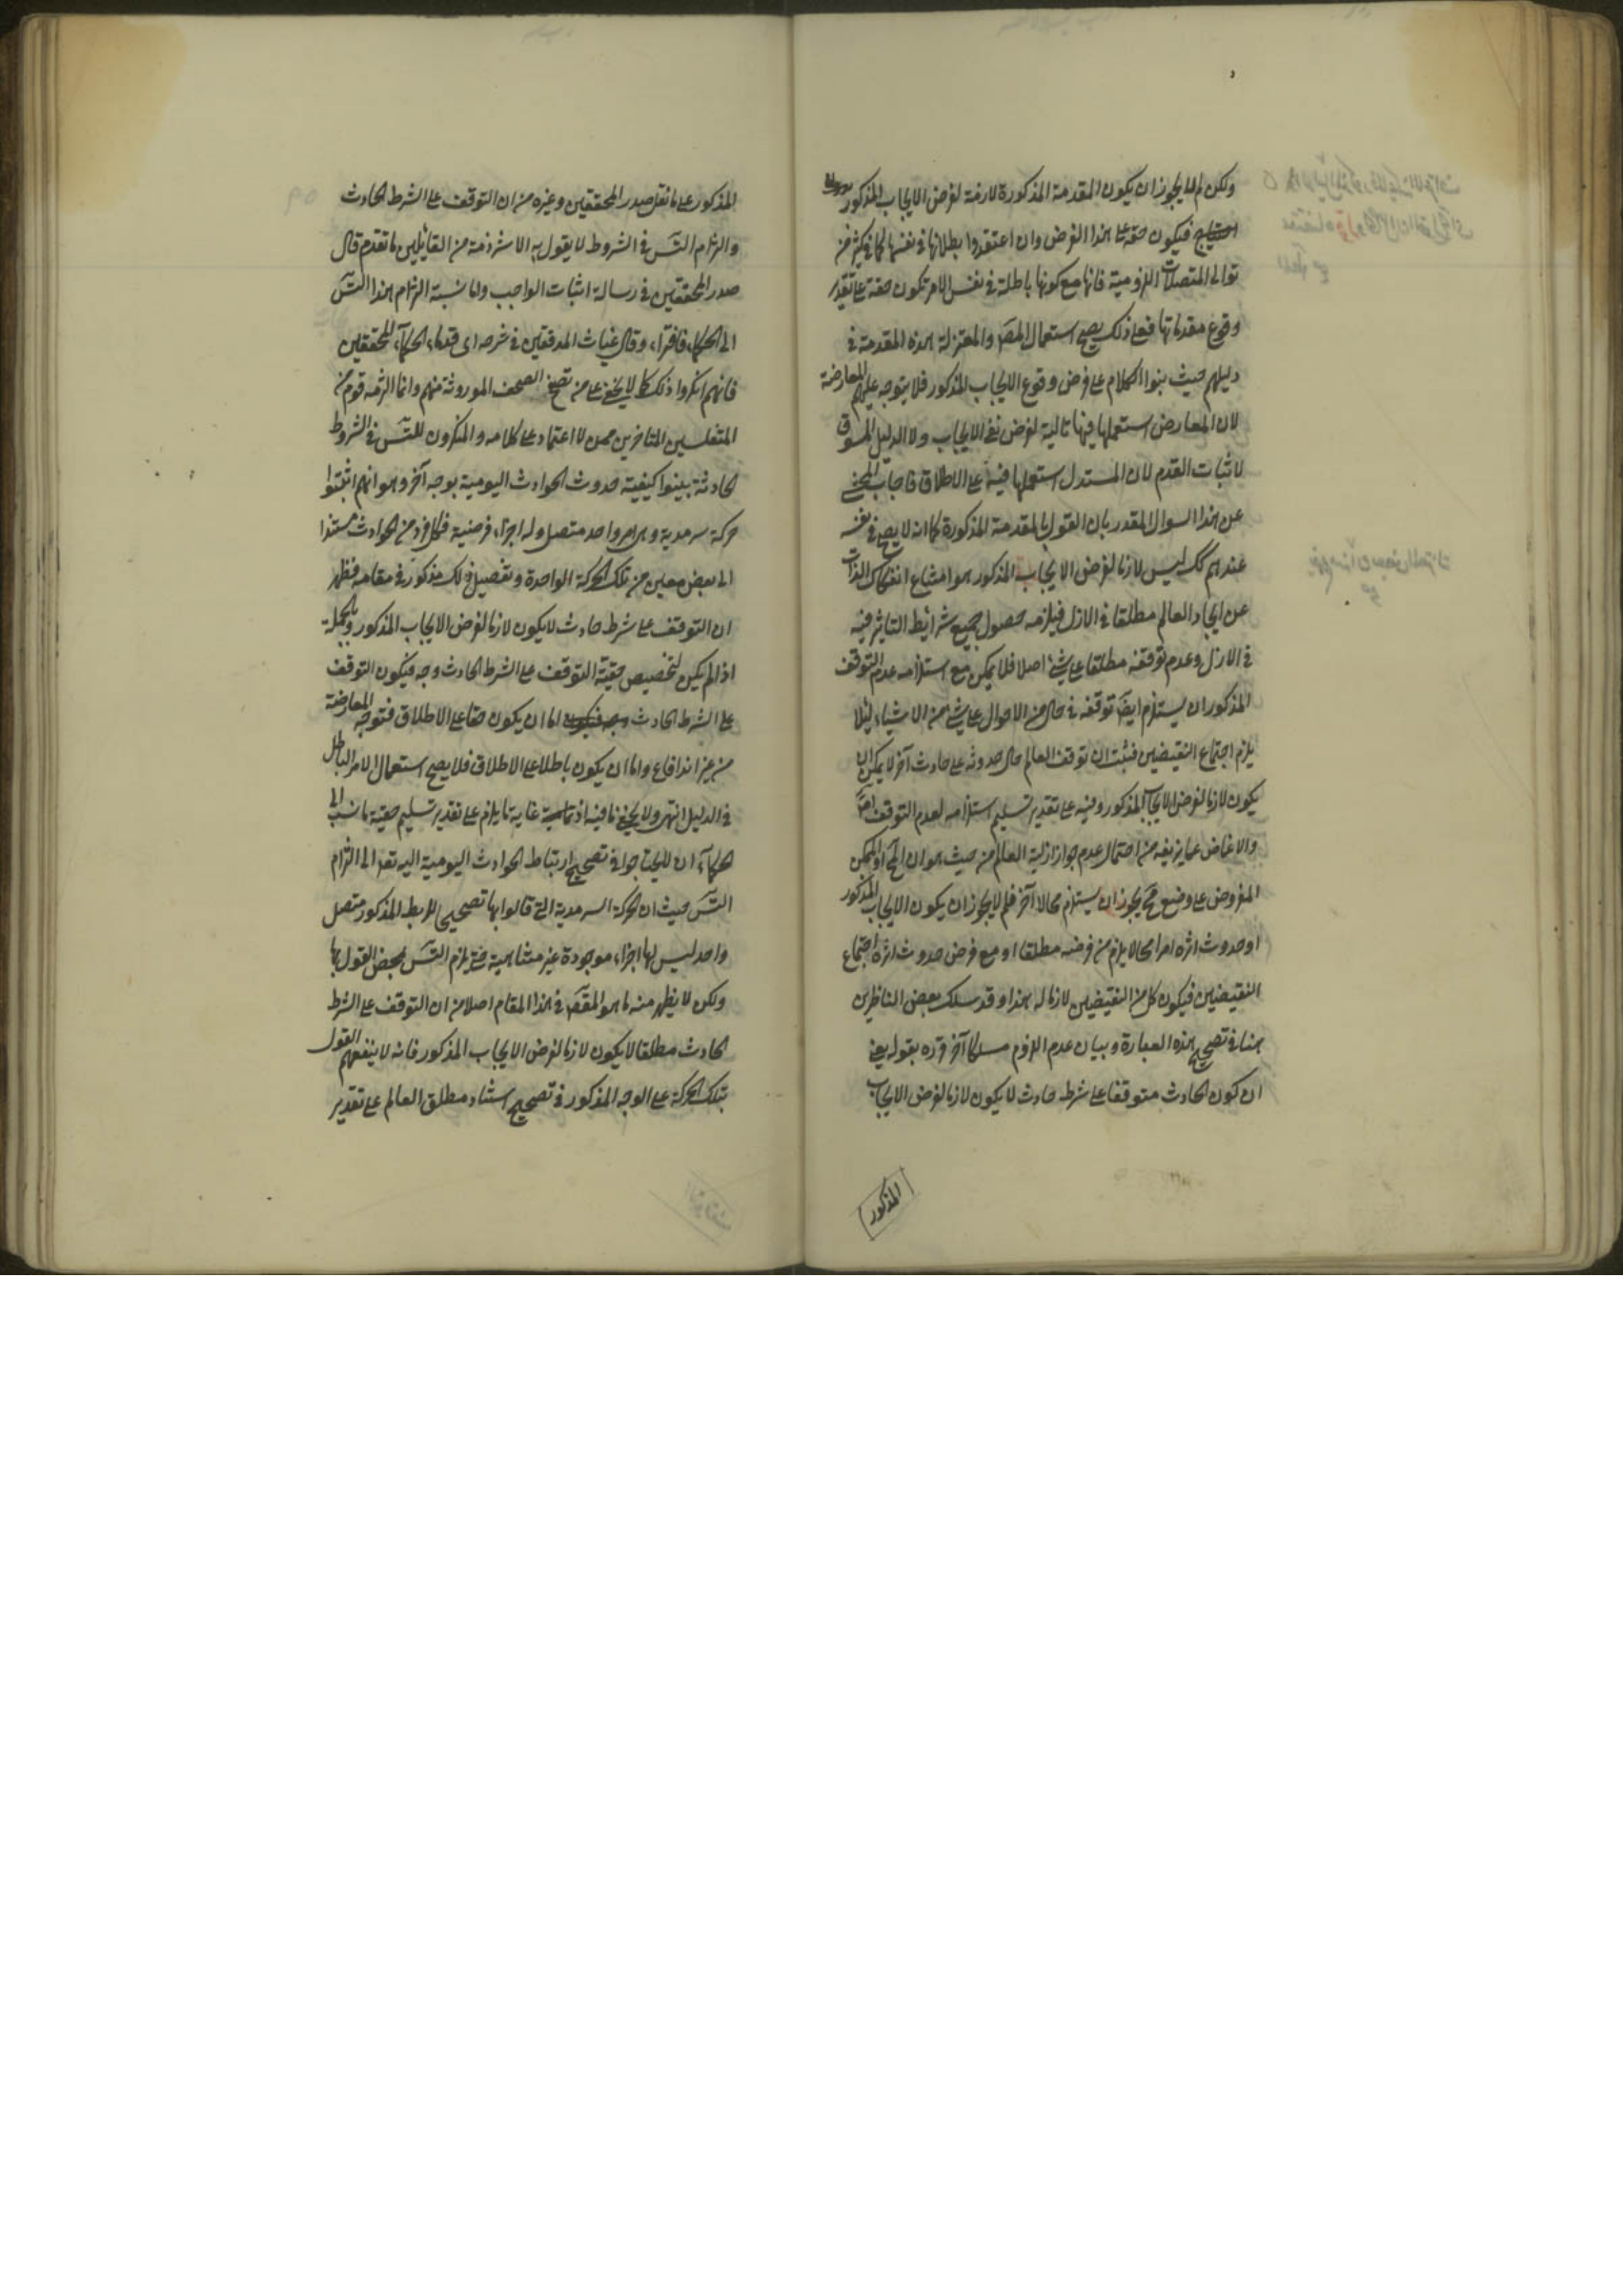 ولكن لم لا يجوز ان يكون المقدمة المذكورة لازمة لفرض الايجاب المذكور
فيكون حقة على هذا الفرض وان اعتقدوا بطلانها في نفسها كما في كثير من
توالى المتصلات اللزومية فانها مع كونها باطلة في نفس الامر تكون حقة على تقدير
وقوع مقدماتها فعلى ذلك يصح استعمال المص والمعتزلة هذه المقدمة في
دليلهم حيث بنوا الكلام على فرض وقوع الايجاب المذكور فلا يتوجه عليهم المعارضة
لان المعارض استعملها فيها تالية لفرض نفي الايجاب ولا الدليل المسوق
لاثبات القدم لان المستدل استعملها فيه على الاطلاق فاجاب المحشي
عن هذا السوال المقدر بان القول بالمقدمة المذكورة كما انه لا يصح في نفسه
عندهم كك ليس لازما لفرض الايجاب المذكور هو امتناع انفكاك الذات
عن ايجاد العالم مطلقا في الازل فيلزمه حصول جميع شرائط التاثير فيه
في الازل وعدم توقفه مطلقا على شئ اصلا فلا يمكن مع استلزامه عدم التوقف
المذكور ان يستلزم ايضا توقفه في حال من الاحوال على شئ من الاشياء لئلا
يلزم اجتماع النقيضين فثبت ان توقف العالم حال حدوثه على حادث آخر لا يمكن ان
يكون لازما لفرض الايجاب المذكور وفيه على تقدير تسليم استلزامه لعدم التوقف
والاغماض عما يزيفه من احتمال عدم جواز ازلية العالم من حيث هو ان المح او الممكن
المفروض على وضع مح يجوز ان يستلزم محالا آخر فلم لا يجوز ان يكون الايجاب المذكور
او حدوث اثره امرا محالا يلزم من فرضه مطلقا او مع فرض حدوث اثره اجتماع
النقيضين فيكون كل من النقيضين لازما له هذا وقد سلك بعض الناظرين
هنا في تصحيح هذه العبارة وبيان عدم اللزوم مسلكا آخر قرره بقوله يعني
ان كون الحادث متوقفا على شرط حادث لا يكون لازما لفرض الايجاب
المذكور
المذكور على ما نقل صدر المحققين وغيره من ان التوقف على الشرط الحادث
والتزام التس في الشروط لا يقول به الا شرذمة من القائلين ما تقدم قال
صدر المحققين في رسالة اثبات الواجب واما نسبة التزام هذا التس
الى الحكماء فافتراء وقال غياث المدققين في شرحه اى قدماء الحكماء المحققين
فانهم انكروا ذلك كما لا يخفى على من تصفح الصحف الموروثة منهم وانما التزمه قوم من
المتفلسفين المتاخرين ممن لا اعتماد على كلامه والمنكرون للتس في الشروط
الحادثة بينوا كيفية حدوث الحوادث اليومية بوجه آخر وهو انهم اثبتوا
حركة سرمدية وهى امر واحد متصل وله اجزاء فرضية فكل فرد من الحوادث مستند
الى بعض معين من تلك الحركة الواحدة وتفصيل ذلك مذكور في مقامه فظهر
ان التوقف على شرط حادث لا يكون لازما لفرض الايجاب المذكور وبالجملة
اذا لم يكن لتخصيص حقية التوقف على الشرط الحادث وجه فيكون التوقف
على الشرط الحادث اما ان يكون حقا على الاطلاق فتوجه المعارضة
من غير اندفاع واما ان يكون باطلا على الاطلاق فلا يصح استعمال الامر الباطل
في الدليل انتهى ولا يخفى ما فيه اذ غاية ما يلزم على تقدير تسليم حقية ما نسب الى
الحكماء ان لا يحتاجوا في تصحيح ارتباط الحوادث اليومية اليه تعا الى التزام
التس حيث ان الحركة السرمدية التي قالوا بها تصحيحا للربط المذكور متصل
واحد ليس لها اجزاء موجودة غير متناهية حتى يلزم التس بمحض القول بها
ولكن لا يظهر منه ما هو المقص في هذا المقام اصلا من ان التوقف على الشرط
الحادث مطلقا لا يكون لازما لفرض الايجاب المذكور فانه لا ينفعهم القول
بتلك الحركة على الوجه المذكور في تصحيح استناد مطلق العالم على تقدير